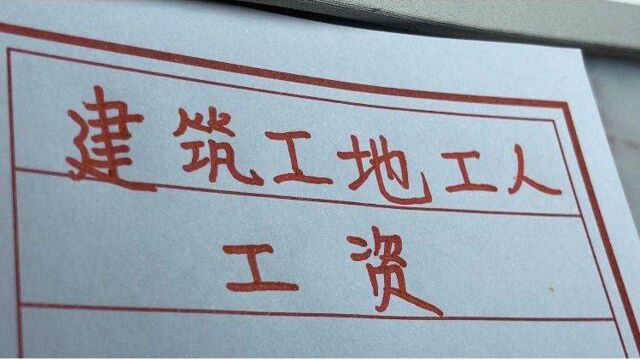 建筑工地工人
工资